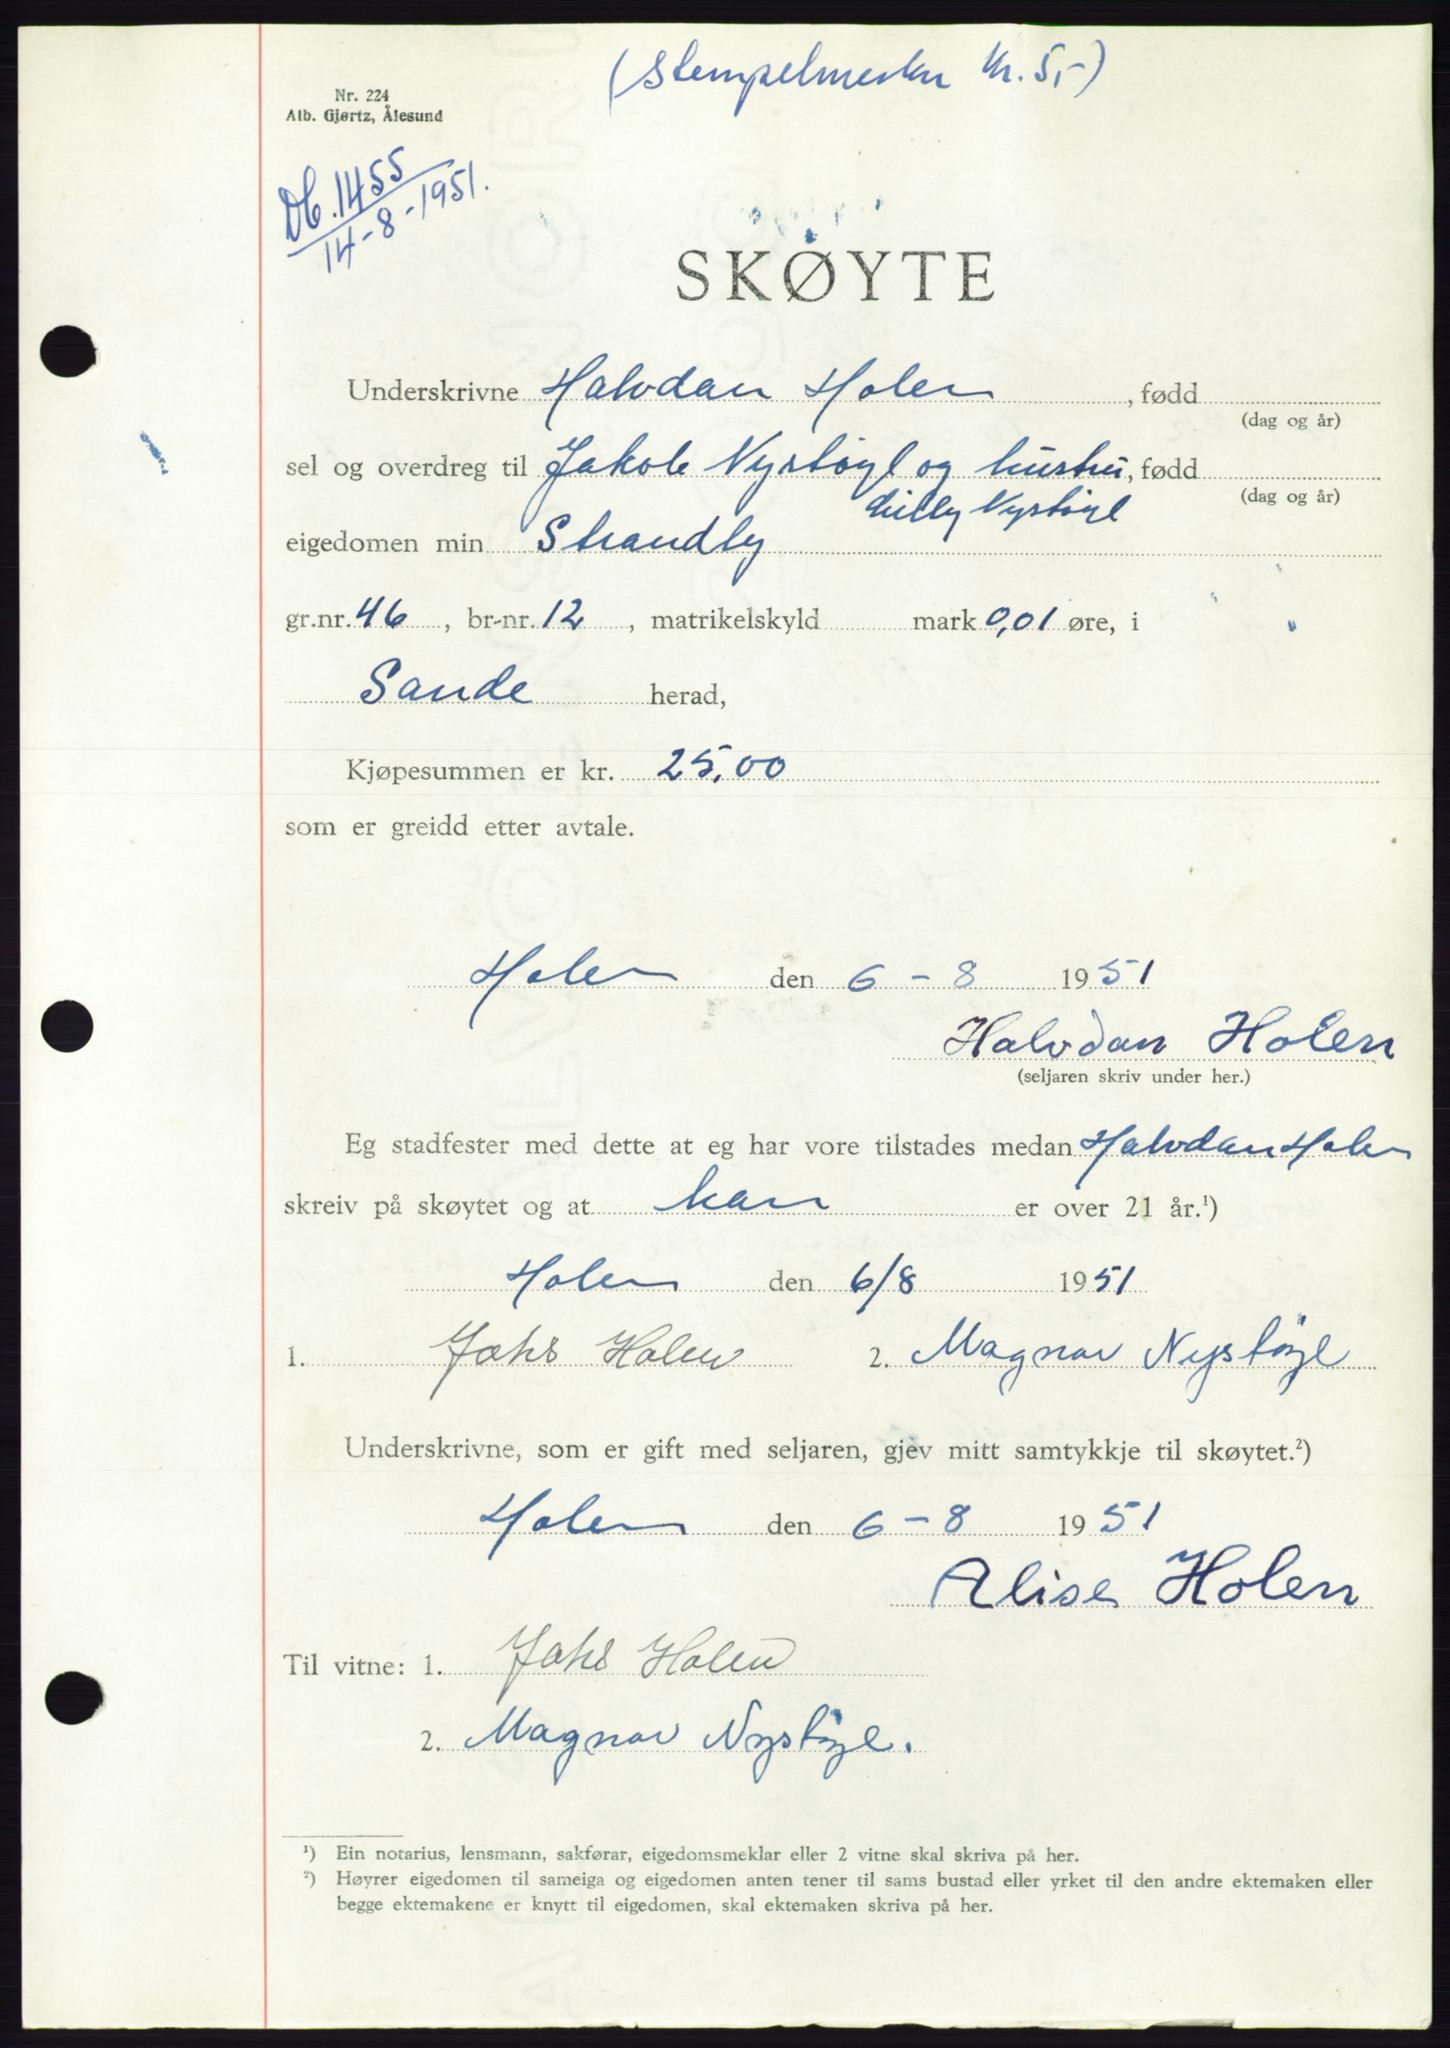 (Stempelmerker kr. 5,-)
Nr. 224
Alb. Gjørtz, Ålesund
Db. 1455
14-8-1951.
SKØYTE
Underskrivne Halvdan Holen, fødd
(dag og år)
sel og overdreg til Jakob Nystøyl og hustru, fødd
(dag og år)
Lilly Nystøyl
eigedomen min Strandby
gr.nr. 46, br-nr. 12, matrikelskyld mark 0,01 øre, i
Sande herad,
Kjøpesummen er kr. 25,00
som er greidd etter avtale.
Holen den 6-8 1951
Halvdan Holen
(seljaren skriv under her.)
Eg stadfester med dette at eg har vore tilstades medan Halvdan Holen
skreiv på skøytet og at han er over 21 år.¹)
Holen den 6/8 1951
1. Johs Holen 2. Magnar Nystøyl
Underskrivne, som er gift med seljaren, gjev mitt samtykkje til skøytet.²)
Holen den 6-8 1951
Alise Holen
Til vitne: 1. Johs Holen
2. Magnar Nystøyl.
¹) Ein notarius, lensmann, sakførar, eigedomsmeklar eller 2 vitne skal skriva på her.
²) Høyrer eigedomen til sameiga og eigedomen anten tener til sams bustad eller yrket til den andre ektemaken eller
begge ektemakene er knytt til eigedomen, skal ektemaken skriva på her.